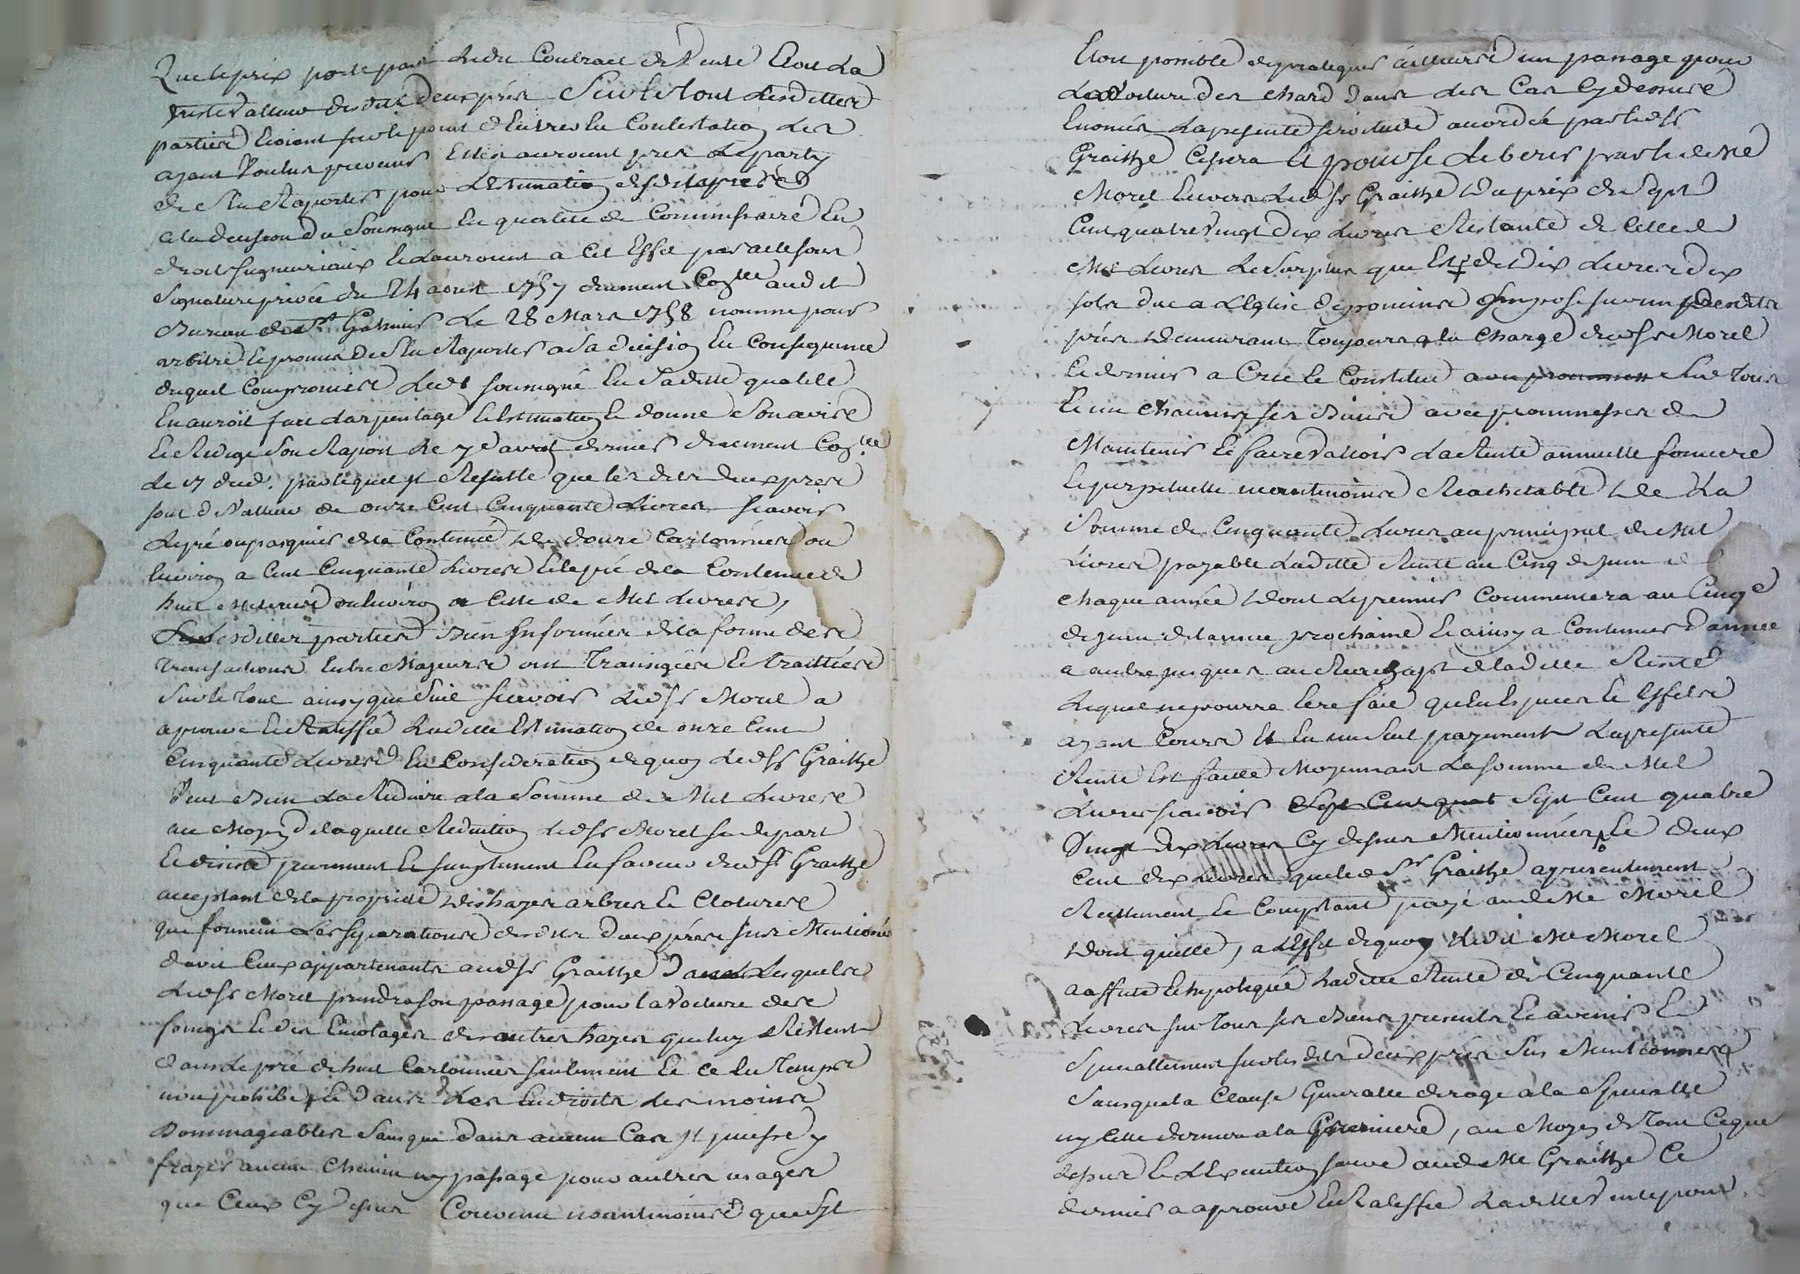 Que le prix porté par ledit Contract de Vente Etoit La
juste valleur desdits deux prés Sur le tout Lesdittes
parties Etoient sur le point d'Entrer En Contestation Les
ayant Voulus prevenir Elles auroient pris Le party
de s'En Raporter pour L'Estimation desdits prés
a la decision du Soussigné En qualité de Commissaire En
droits seigneuriaux Et L'auroient a Cet Effet par acte sous
Signature privée du 24 aoust 1757 duement Coollé audit
Bureau de St Galmier Le 28 Mars 1758 nommé pour
arbitre Et promis de s'En Raporter a Sa decision En Consequence
duquel Compromis Ledt soussigné En Laditte qualité
En auroit fait L'arpentage Et Estimation Et donné Son avis
Et Redigé Son Raport Le 7 d'avril dernier duement Coollé
Le 17 dud. par lequel il Resulte que lesdits deux prés
sont de Valleur de onze Cent Cinquante Livres scavoir
Le pré ou pasquier de la Contenue de douze Cartonnées ou
Environ a Cent Cinquante Livres Et le pré de la Contenue de
huit Meterées ou Environ a Celle de Mil Livres,
Lesdittes parties Bien Informées de la forme des
transactions Entre Majeurs ont Transigées Et Traittées
Sur le Tout ainsy que Suit scavoir Led. Sr Morel a
aprouvé Et Ratiffié Laditte Estimation de onze Cent
Cinquante Livres En Consideration de quoy Led. Sr Graithe
Veut Bien La Reduire a la Somme de Mil Livres
au Moyen de laquelle Reduction Led. Sr Morel se depart
Et devise purement Et simplement En faveur dud. Sr Graithe
acceptant de la proprieté des hayes arbres Et Clotures
qui forment Les Separations desdits deux prés sus Mentionés
d'avec Ceux appartenants aud. Sr Graithe Dans Lesquels
Led. Sr Morel prendra son passage pour la Voiture des
foings Et des Emotages des autres hayes qui luy Restent
dans Le pré de huit Cartonnées seulement Et ce En Temps
non prohibé, Et Dans Les Endroits Les moins
Dommageables Sans que dans aucun Cas il puisse y
frayer aucun Chemin ny passage pour autres usages
que Ceux Cy dessus Convenu neantmoins que S'il
Etoit possible de pratiquer ailleurs un passage pour
La Voiture des Chard Dans Les Cas Cy dessus
Enoncés La presente servitude accordée par led. Sr
Graithe Cessera Et pour se Liberer par led. Me
Morel Envers Led. Sr Graithe du prix de Sept
Cent quatre Vingt Dix Livres Restante de Celle de
Mil Livres Le Surplus qui Est de Dix Livres Dix
sols du a L'Eglise de pomeins Imposé sur un desdits
prés demeurant Toujours a la Charge dud. Sr Morel
Ce dernier a Créé Et Constitué Sur Tous
Et un Chacuns ses Biens avec promesses de
Maintenir Et faire Valloir La Rente annuelle fonciere
Et perpetuelle neantmoins Rachetable de La
Somme de Cinquante Livres au principal de Mil
Livres payable Laditte Rente au Cinq de Juin de
Chaque année dont Le premier Commencera au Cinq
de Juin de lannée prochaine Et ainsy a Continuer D'année
a autre jusques au Rachapt de laditte Rente
Lequel ne pourra Etre fait qu'En Especes Et Effets
ayant Cours Et En un Seul payement La presente
Rente Est faitte Moyennant La somme de Mil
Livres scavoir Sept Cent quatre
Vingt Dix Livres Cy dessus Mentionnées, Et Deux
Cent dix Livres que led. Sr Graithe a presentement
Reellement Et Comptant payé aud. Me Morel
Dont quitte, a L'Effet de quoy Ledit Me Morel
a affecté Et hypotequé Laditte Rente de Cinquante
Livres sur Tous ses Biens presents Et avenir Et
Speciallement sur les dits Deux prés Sus Mentionnés
Sans que la Clause Generalle deroge a la Specialle
ny Cette derniere a la premiere, au Moyen de Tout Ce que
dessus Et L'Execution sauve aud. Me Graithe Ce
dernier a aprouvé Et Ratiffié Laditte Vente pour